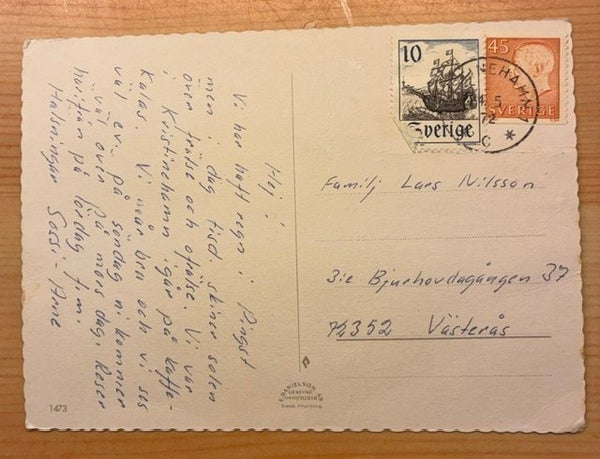 Hej!
Vi har haft regn i Pingst
men i dag tisd. skiner solen
över frilse och ofrälse. Vi var
i Kristinehamn igår på kaffe-
kalas. Vi mår bra och vi ses
väl ev. på söndag ni kommer
väl över på mors dag. Reser
härifrån på lördag f.m.
Hälsningar Sossi-Arne
10
Sverige
45
SVERIGE
NEHAMN
5
72
C *
Familj Lars Nilsson
3:e Bjurhovdagången 37
72352 Västerås
DANIELSON
1473